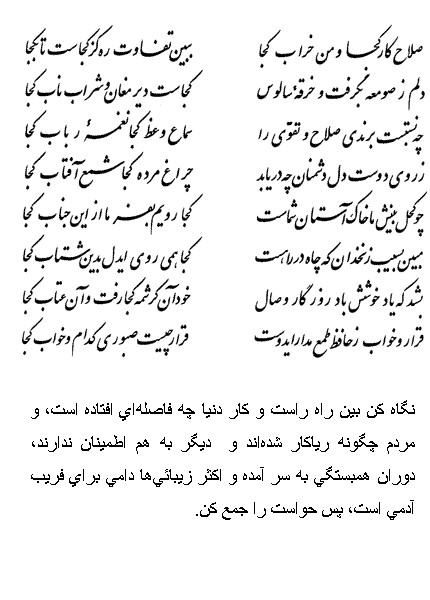 صلاح کار کجا و من خراب کجا ببین تفاوت ره کز کجاست تا بکجا
دلم ز صومعه بگرفت و خرقهٔ سالوس کجاست دیر مغان و شراب ناب کجا
چه نسبتست برندی صلاح و تقوی را سماع وعظ کجا نغمهٔ رباب کجا
ز روی دوست دل دشمنان چه دریابد چراغ مرده کجا شمع آفتاب کجا
چو کحل بینش ما خاک آستان شماست کجا رویم بفرما از این جناب کجا
مبین بسیب زنخدان که چاه در راهست کجا همی روی ایدل بدین شتاب کجا
بشد که یاد خوشش باد روزگار وصال خود آن کرشمه کجا رفت و آن عتاب کجا
قرار و خواب ز حافظ طمع مدار ایدوست قرار چیست صبوری کدام و خواب کجا
نگاه کن بين راه راست و کار دنيا چه فاصله‌اي افتاده است، و
مردم چگونه رياکار شده‌اند و ديگر به هم اطمينان ندارند،
دوران همبستگي به سر آمده و اکثر زيبائي‌ها دامي براي فريب
آدمي است، پس حواست را جمع کن.